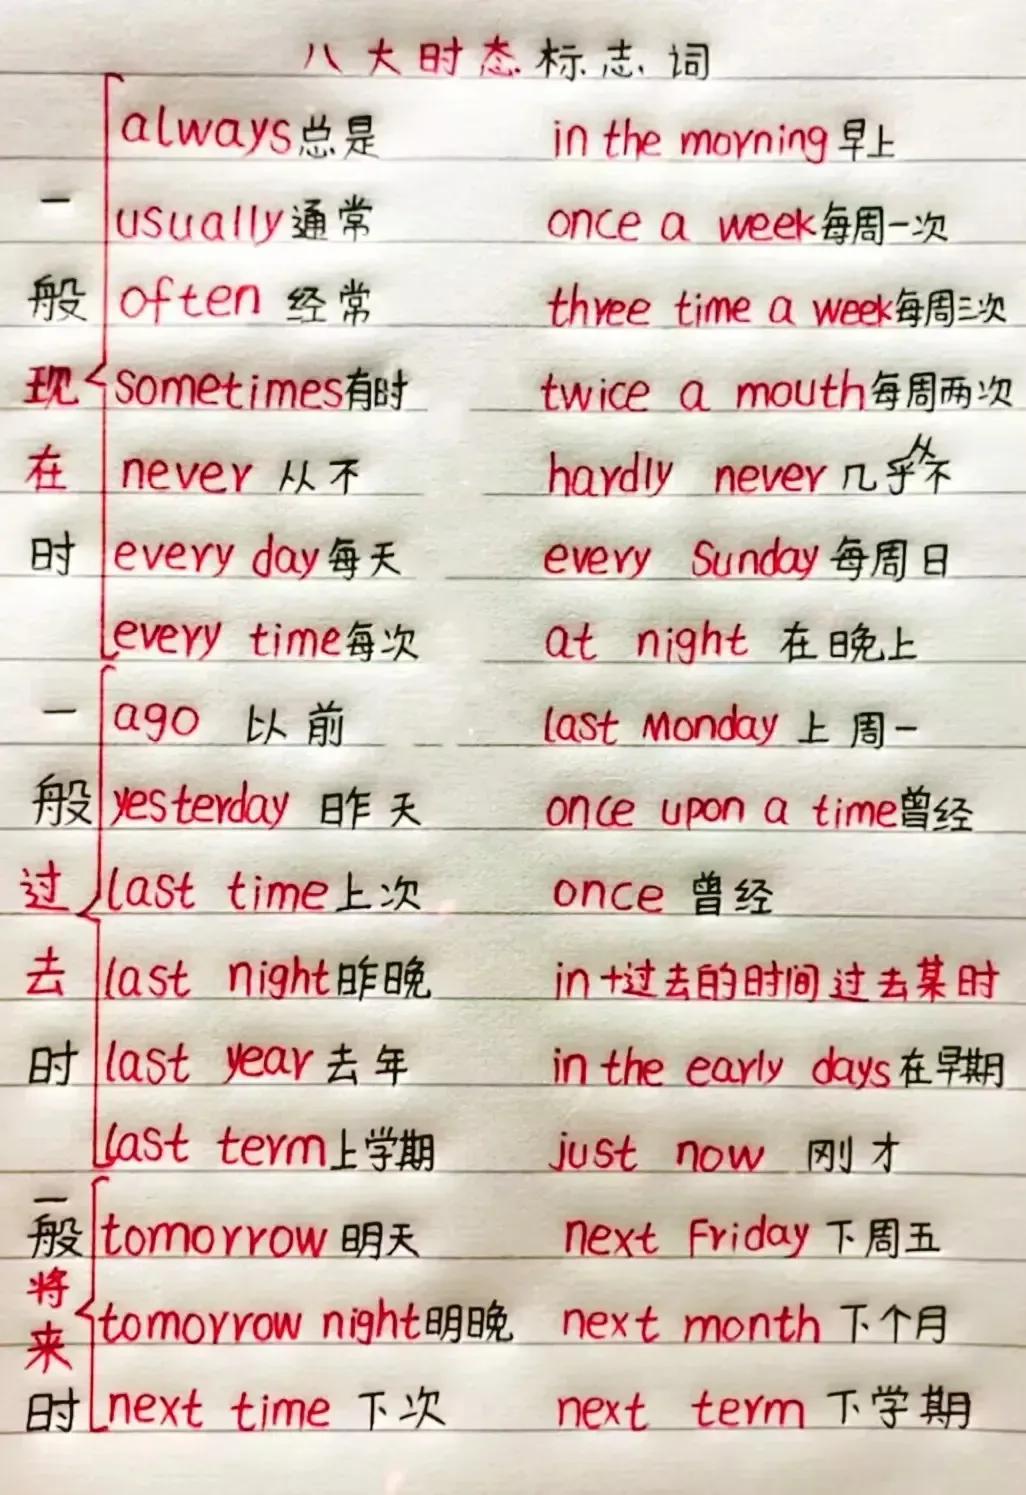 八大时态标志词
always总是 in the morning早上
usually通常 once a week每周一次
often 经常 three time a week每周三次
sometimes有时 twice a mouth每周两次
never 从不 hardly never 几乎从不
every day每天 every Sunday 每周日
every time每次 at night 在晚上
一般现在时
ago 以前 last Monday 上周一
yesterday 昨天 once upon a time曾经
last time上次 once 曾经
last night昨晚 in+过去的时间 过去某时
last year 去年 in the early days在早期
last term上学期 just now 刚才
一般过去时
tomorrow 明天 next Friday 下周五
tomorrow night明晚 next month 下个月
next time 下次 next term 下学期
一般将来时